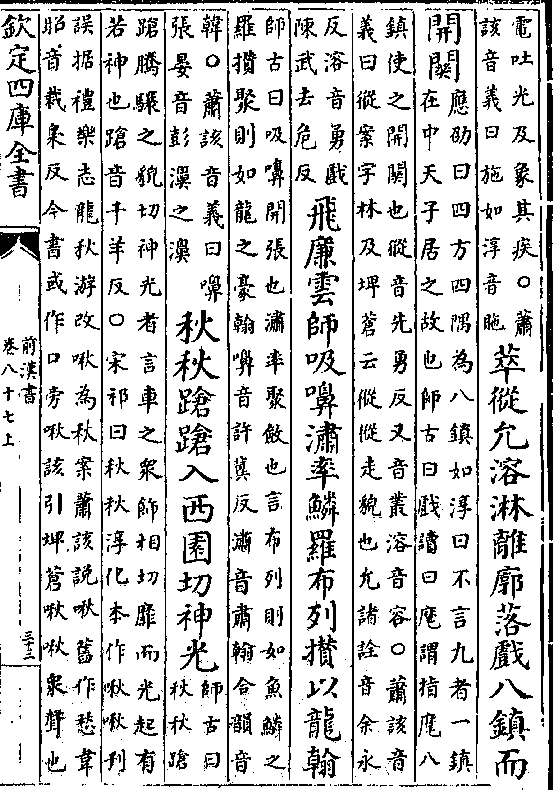 電吐光及象其疾〇蕭
該音義曰施如淳音䏢
萃傱允溶淋離廓落戲八鎮而
開關
應劭曰四方四隅為八鎮如淳曰不言九者一鎮
在中天子居之故也師古曰戲讀曰麾謂指麾八
鎮使之開關也傱音先勇反又音叢溶音容〇蕭該音
義曰傱案字林及埤蒼云傱傱走貌也允諸詮音余永
反溶音勇戲
陳武去危反
飛廉雲師吸嚊潚率鱗羅布列攢以龍翰
師古曰吸嚊開張也潚率聚斂也言布列則如魚鱗之
羅攢聚則如龍之豪翰嚊音許冀反潚音肅翰合韻音
韓〇蕭該音義曰嚊
張晏音彭濞之濞
秋秋蹌蹌入西園切神光
師古曰
秋秋蹌
蹌騰驤之貌切神光者言車之衆飾相切靡而光起有
若神也蹌音千羊反〇宋祁曰秋秋淳化本作啾啾刋
誤据禮樂志龍秋游改啾為秋案蕭該說啾舊作愁韋
昭音裁梟反今書或作口旁啾該引埤蒼啾啾衆聲也
欽定四庫全書
前漢書
卷八十七上
三十三